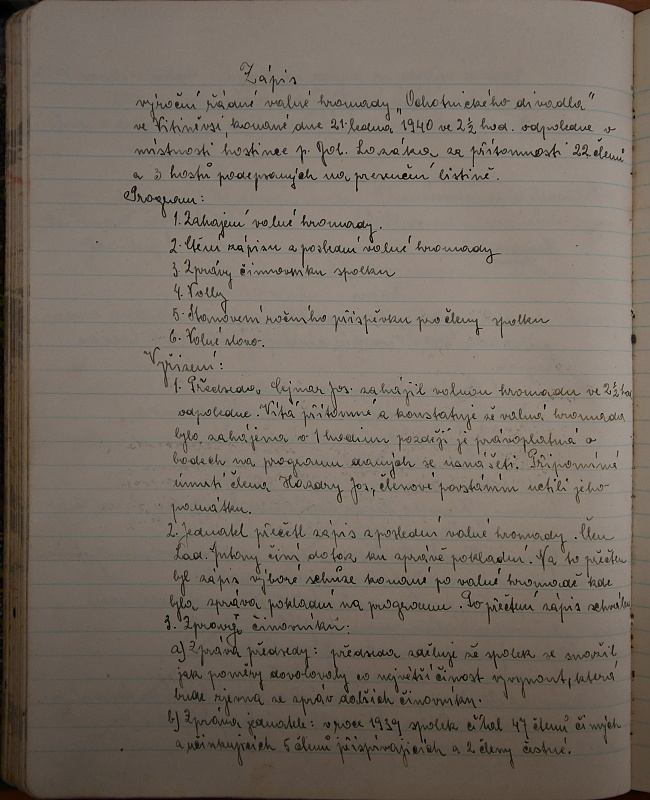 Zápis
výroční řádné valné hromady „Ochotnického divadla"
ve Vitiněvsi konané dne 21. ledna 1940 ve 2½ hod. odpoledne v
místnosti hostince p. Job. Lozáka za přítomnosti 22 členů
a 3 hostů podepsaných na presenční listině.
Program:
1. Zahajení valné hromady.
2. Čtení zápisu z poslední valné hromady
3. Zprávy činovníků spolku
4. Volby
5. Stanovení ročního příspěvku pro členy spolku
6. Volné slovo.
Vyřízení:
1. Předseda, Cejnar Jos. zahájil valnou hromadu ve 2½ ho
odpoledne. Vítá přítomné a konstatuje že valná hromada
byla zahájena o 1 hodinu později je právoplatná o
bodech na programu daných se usnášeti. Připomíná
úmrtí člena Hazdry Jos., členové povstáním uctili jeho
památku.
2. Jednatel přečetl zápis z poslední valné hromady. Člen
Lad. Antony činí dotaz ku zprávě pokladní. Na to přečten
byl zápis výborové schůze konané po valné hromadě kde
byla zpráva pokladní na programu. Po přečtení zápis schválen
3. Zprávy činovníků:
a) Zpráva předsedy: předseda sděluje že spolek se snažil
jak poměry dovolovaly co největší činost vyvynout, která
bude zjevna ze zpráv dalších činovníků.
b) Zpráva jednatele: v roce 1939 spolek čítal 47 členů činých
a učinkujících 5 členů přispívajících a 2 členy čestné.